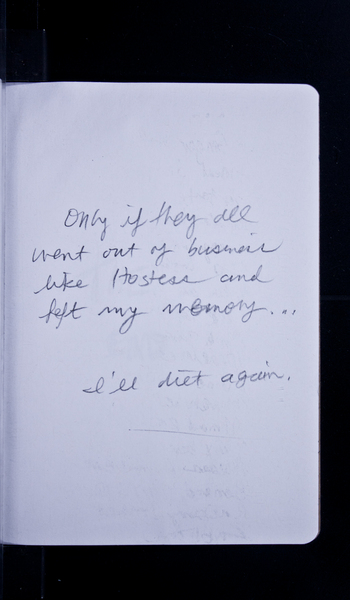 Only if they all
went out of business
like Hostess and
left my memory...
I'll diet again.